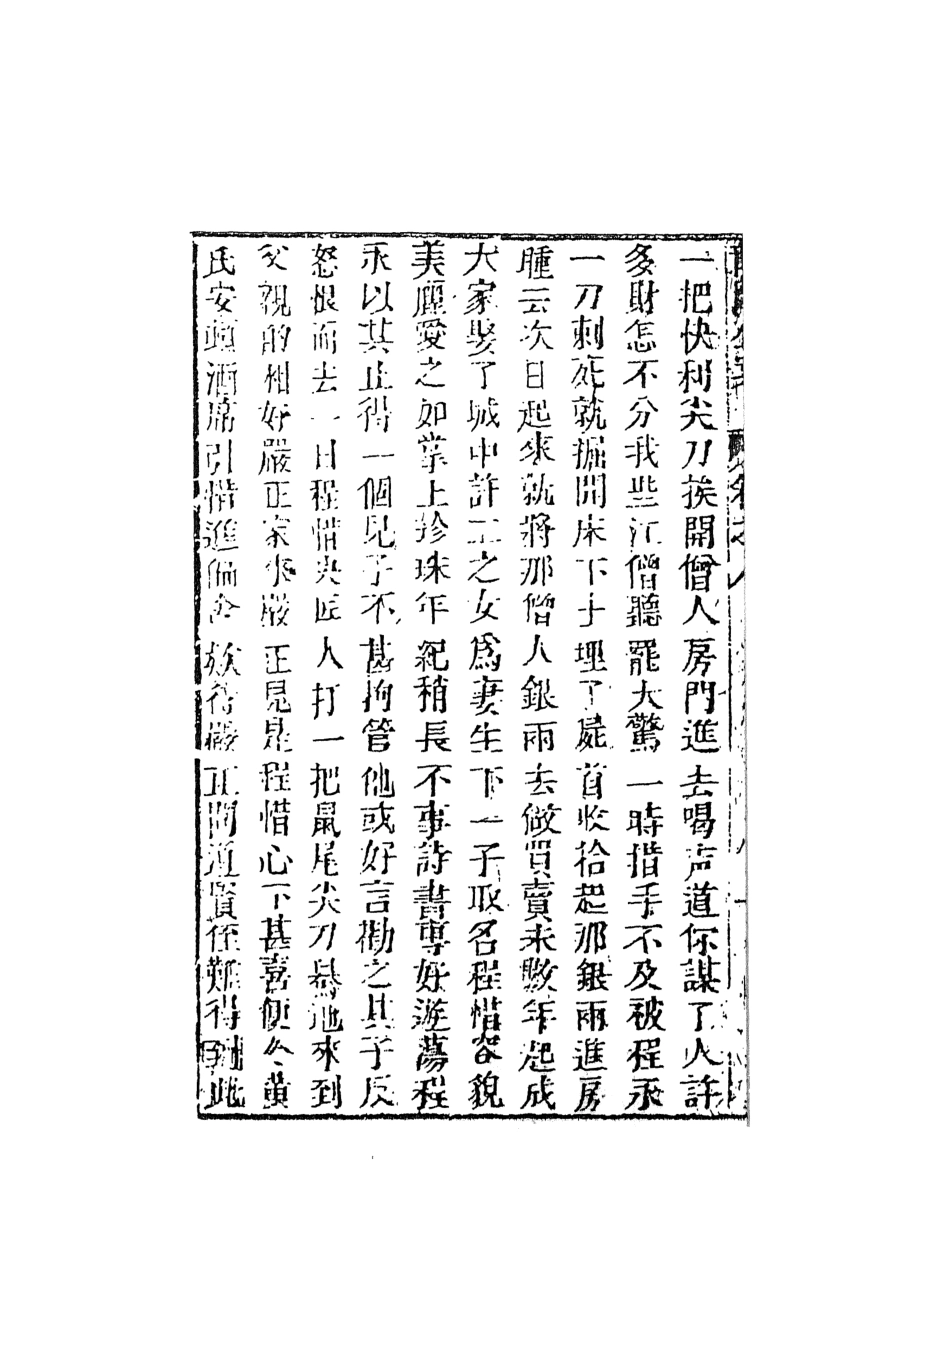 一把快利尖刀挨開僧人房門進去喝声道你謀了人許
多財怎不分我些江僧聽罷大驚一時措手不及被程永
一刀刺死就掘開床下土埋了屍首收拾起那銀兩進房
睡去次日起來就將那僧人銀兩去做買賣未數年起成
大家娶了城中許二之女爲妻生下一子取名程惜容貌
美麗愛之如掌上珍珠年紀稍長不事詩書專好遊蕩程
永以其止得一個兒子不甚拘管他或好言勸之其子反
怒恨而去一日程惜央匠人打一把鼠尾尖刀驀地來到
父親的相好嚴正家來嚴正見是程惜心下甚喜便令黃
氏安頓酒席引惜進偏舍欵待嚴正問道賢侄難得到此